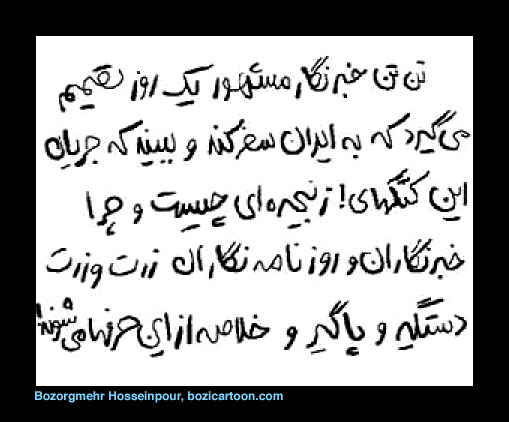 تن تن خبرنگار مشهور یک روز تصمیم
می گیرد که به ایران سفر کند و ببیند که جریان
این کتکهای! زنجیره ای چیست و چرا
خبرنگاران و روزنامه نگاران زرت وزرت
دستگیر و پاگیر و خلاصه از این حرفها می شوند!
Bozorgmehr Hosseinpour, bozicartoon.com